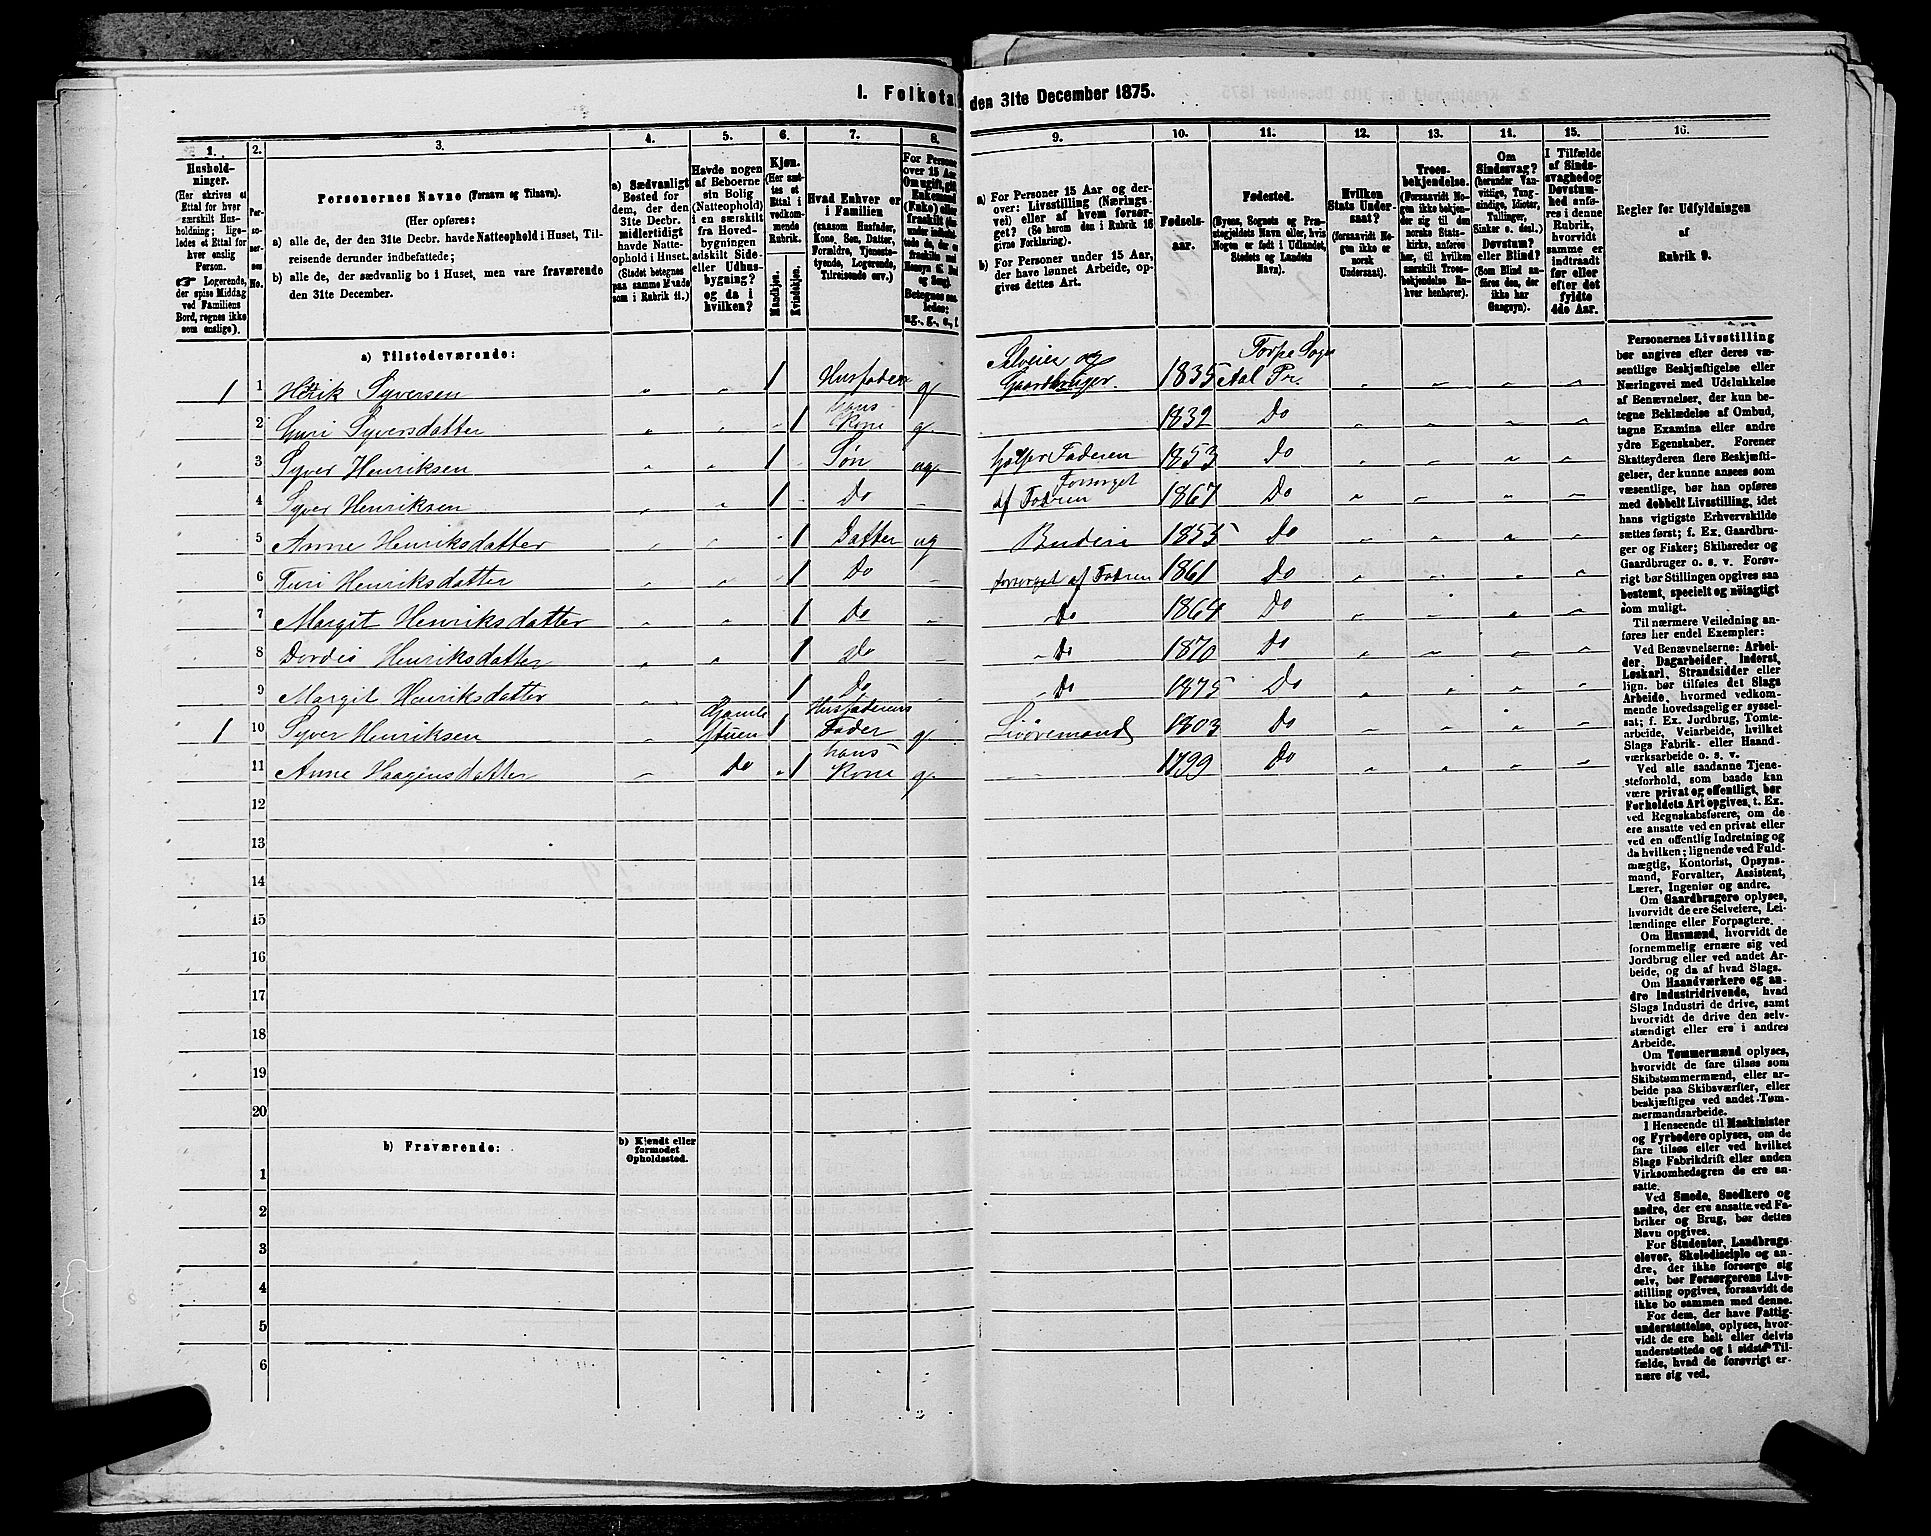 I. Folketal den 31te December 1875.
1. 2. 3. 4. 5. 6. 7. 8. 9. 10. 11. 12. 13. 14. 15. 16.
Hushold-
ninger.
(Her skrives et
Ettal for hver
særskilt Hus-
holdning; lige-
ledes et Ettal for
hver enslig
Person.
☛ Logerende,
der spise Middag
ved Familiens
Bord, regnes ikke
som enslige).
Per-
so-
ner-
nes
No.
Personernes Navne (Fornavn og Tilnavn).
(Her opføres:
a) alle de, der den 31te Decbr. havde Natteophold i Huset, Til-
reisende derunder indbefattede;
b) alle de, der sædvanlig bo i Huset, men vare fraværende
den 31te December.
a) Sædvanligt
Bosted for
dem, der den
31te Decbr.
midlertidigt
havde Natte-
ophold i Huset.
(Stedet betegnes
paa samme Maade
som i Rubrik 11.)
Havde nogen
af Beboerne
sin Bolig
(Natteophold)
i en særskilt
fra Hoved-
bygningen
adskilt Side-
eller Udhus-
bygning?
og da i
hvilken?
Kjøn.
(Her sæt-
tes et
Ettal i
vedkom-
mende
Rubrik.
Mandkjøn.
Kvindekjøn.
Hvad Enhver er
i Familien
(saasom Husfader,
Kone, Søn, Datter,
Forældre, Tjeneste-
tyende, Logerende,
Tilreisende osv.)
For Persone
over 15 Aar
Om ugift, gift
Enkemand
(Enke) eller
fraskilt
Betegnes saa-
ledes:
ug., g., e., f.
a) For Personer 15 Aar og der-
over: Livsstilling (Nærings-
vei) eller af hvem forsør-
get? (Se herom den i Rubrik 16
givne Forklaring).
b) For Personer under 15 Aar,
der have lønnet Arbeide, op-
gives dettes Art.
Fødsels-
aar.
Fødested.
(Byens, Sognets og Præ-
stegjeldets Navn eller, hvis
Nogen er født i Udlandet,
Stedets og Landets
Navn).
Hvilken
Stats Under-
saat?
(forsaavidt No-
gen ikke er
norsk
Undersaat).
Troes-
bekjendelse.
(Forsaavidt No-
gen ikke bekjen-
der sig til den
norske Stats-
kirke, anføres
her, til hvilken
særskilt Troes-
bekjendelse En-
hver henhører).
Om
Sindssvag?
(herunder Van-
vittige, Tung-
sindige, Idioter,
Tullinger,
Sinker o. desl.)
Døvstum?
eller Blind?
(Som Blind an-
føres den, der
ikke har
Gangsyn).
I Tilfælde
af Sinds-
svaghed og
Døvstum-
hed anfø-
res i denne
Rubrik,
hvorvidt
samme er
indtraadt
før eller
efter det
fyldte
4de Aar.
Regler for Udfyldningen
af
Rubrik 9.
a) Tilstedeværende:
1 1 Henrik Syversen 1 Husfader g Selveier og Gaardbruger 1835 Torpe Sogn Aal Pr.
2 Guri Syversdatter 1 hans Kone g 1832 Do
3 Syver Henriksen 1 Søn ug hjelper Faderen 1853 Do
4 Syver Henriksen 1 Do Forsørget af Fadren 1867 Do
5 Anne Henriksdatter 1 Datter ug Budeie 1855 Do
6 Turi Henriksdatter 1 Do forsørget af Fadren 1861 Do
7 Margit Henriksdatter 1 Do Do 1864 Do
8 Dordei Henriksdatter 1 Do Do 1870 Do
9 Margit Henriksdatter 1 Do Do 1875 Do
1 10 Syver Henriksen Gamle stuen 1 Husfaderens Fader g Livøremand 1803 Do
11 Anne Haagensdatter Do 1 hans Kone g 1799 Do
12
13
14
15
16
17
18
19
20
b) Fraværende: b) Kjendt eller
formodet
Opholdssted.
1
2
3
4
5
6
Personernes Livsstilling
bør angives efter deres væ-
sentlige Beskjæftigelse eller
Næringsvei med Udelukkelse
af Benævnelser, der kun be-
tegne Beklædelse af Ombud,
tagne Examina eller andre
ydre Egenskaber. Forener
Skatteyderen flere Beskjæfti-
gelser, der kunne ansees som
væsentlige, bør han opføres
med dobbelt Livsstilling, idet
hans vigtigste Erhvervskilde
sættes først; f. Ex. Gaardbru-
ger og Fisker; Skibsreder og
Gaardbruger o. s. v. Forøv-
rigt bør Stillingen opgives saa
bestemt, specielt og nøiagtigt
som muligt.
Til nærmere Veiledning an-
føres her endel Exempler:
Ved Benævnelserne: Arbei-
der, Dagarbeider, Inderst,
Løskarl, Strandsidder eller
lign. bør tilføies det Slags
Arbeide, hvormed vedkom-
mende hovedsagelig er syssel-
sat; f. Ex. Jordbrug, Tomte-
arbeide, Veiarbeide, hvilket
Slags Fabrik- eller Haand-
værksarbeide o. s. v.
Ved alle saadanne Tjene-
steforhold, som baade kan
være privat og offentligt, bør
Forholdets Art opgives, t. Ex.
ved Regnskabsførere, om de
ere ansatte ved en privat eller
ved en offentlig Indretning og
da hvilken; lignende ved Fuld-
mægtig, Kontorist, Opsyns-
mand, Forvalter, Assistent,
Lærer, Ingeniør og andre.
Om Gaardbrugere oplyses,
hvorvidt de ere Selveiere, Lei-
lændinge eller Forpagtere.
Om Husmænd, hvorvidt de
fornemmelig ernære sig ved
Jordbrug eller ved andet Ar-
beide, og da af hvad Slags.
Om Haandværkere og an-
dre Industridrivende, hvad
Slags Industri de drive, samt
hvorvidt de drive den selv-
stændigt eller ere i andres
Arbeide.
Om Tømmermænd oplyses,
hvorvidt de fare tilsøs som
Skibstømmermænd, eller ar-
beide paa Skibsværfter, eller
beskjæftiges ved andet Tøm-
mermandsarbeide.
I Henseende til Maskinister
og Fyrbødere oplyses, om de
fare tilsøs eller ved hvilket
Slags Fabrikdrift eller anden
Virksomhedsgren de ere an-
satte.
Ved Smede, Snedkere og
andre, der ere ansatte ved Fa-
briker og Brug, bør dettes
Navn opgives.
For Studenter, Landbrugs-
elever, Skoledisciple og an-
dre, der ikke forsørge sig
selv, bør Forsørgerens Livs-
stilling opgives, forsaavidt de
ikke bo sammen med denne.
For dem, der have Fattig-
understøttelse, oplyses, hvor-
vidt de ere helt eller delvis
understøttede og i sidste Til-
fælde, hvad de forøvrigt er-
nære sig ved.